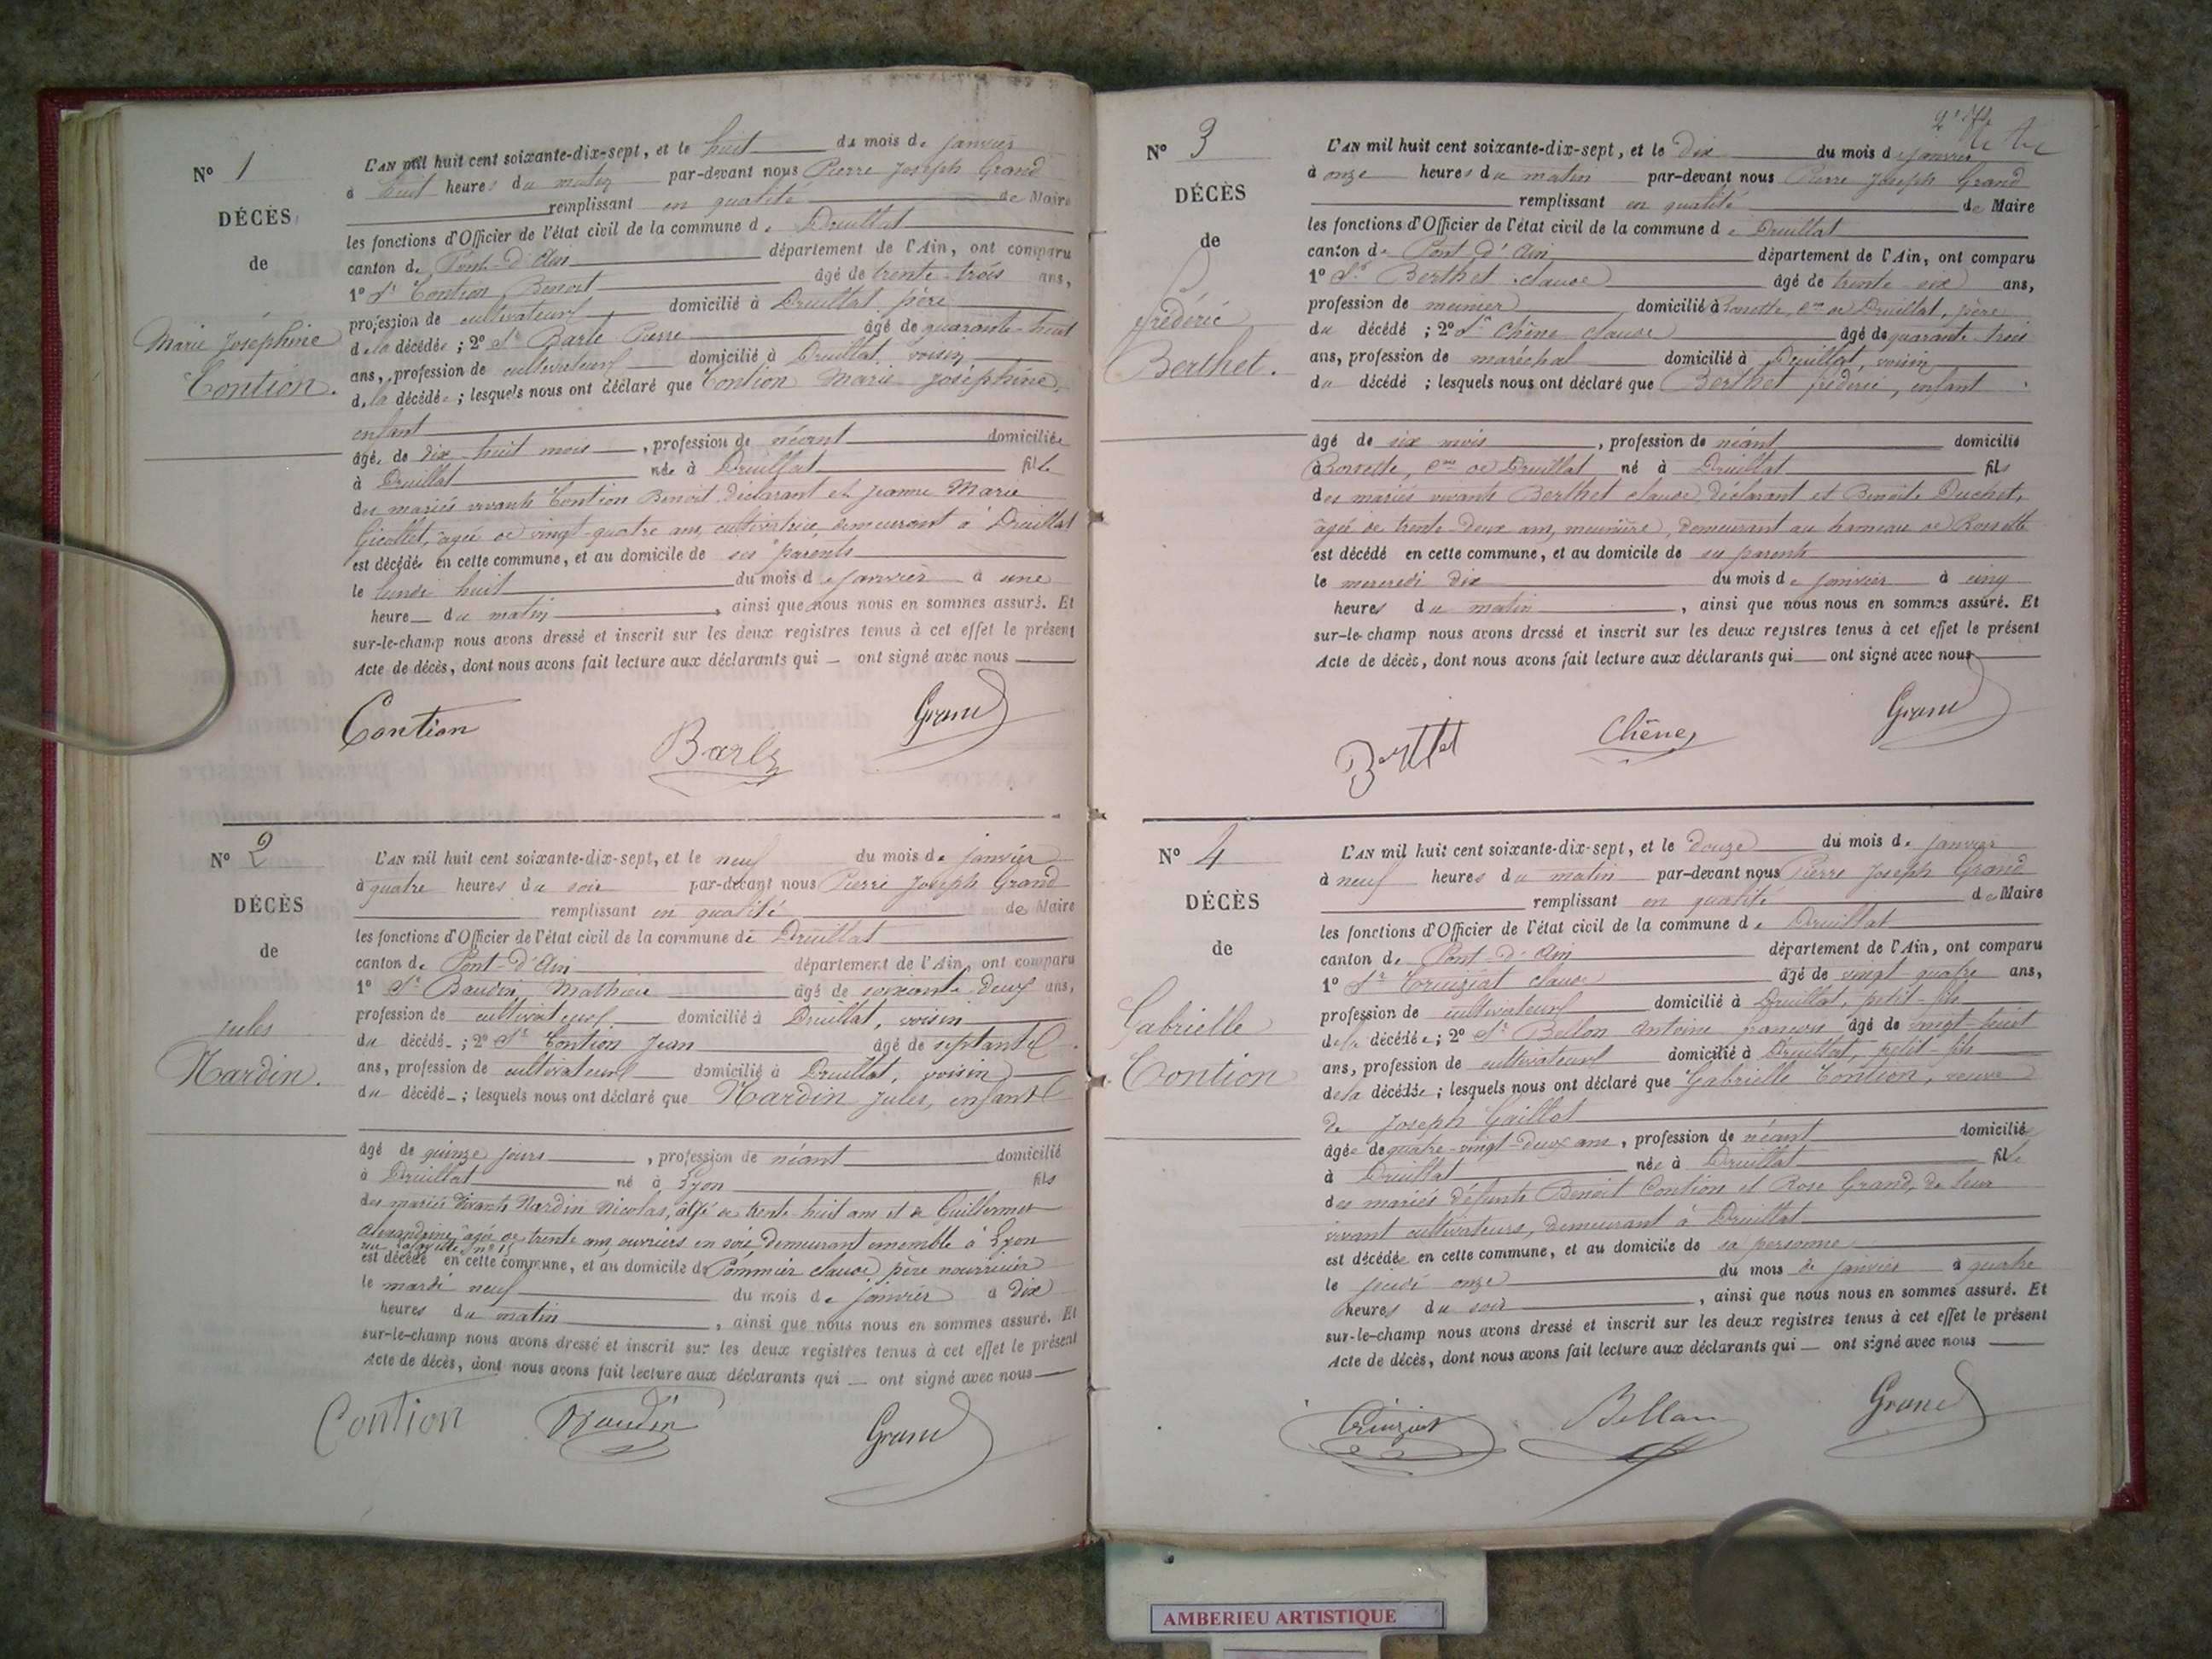 N° 1
DÉCÈS
de
Marie Joséphine
Contion.
L'AN mil huit cent soixante-dix-sept, et le huit du mois de janvier
à huit heures du matin par-devant nous Pierre Joseph Grand
remplissant en qualité de Maire
les fonctions d'Officier de l'état civil de la commune de Druillat
canton de Pont-d'Ain département de l'Ain, ont comparu
1° Sr Contion Benoit âgé de trente-trois ans,
profession de cultivateur domicilié à Druillat père
de la décédée ; 2° Sr Barle Pierre âgé de quarante-huit
ans, profession de cultivateur domicilié à Druillat, voisin
de la décédée ; lesquels nous ont déclaré que Contion Marie Joséphine,
enfant
âgée de dix-huit mois, profession de néant domiciliée
à Druillat née à Druillat fille
des mariés vivants Contion Benoit déclarant et Jeanne Marie
Gicollet, âgée de vingt-quatre ans, cultivatrice, demeurant à Druillat
est décédée en cette commune, et au domicile de ses parents
le lundi huit du mois de janvier à une
heure du matin, ainsi que nous nous en sommes assuré. Et
sur-le-champ nous avons dressé et inscrit sur les deux registres tenus à cet effet le présent
Acte de décès, dont nous avons fait lecture aux déclarants qui ont signé avec nous
Contion Barle Grand
N° 2
DÉCÈS
de
Jules
Nardin.
L'AN mil huit cent soixante-dix-sept, et le neuf du mois de janvier
à quatre heures du soir par-devant nous Pierre Joseph Grand
remplissant en qualité de Maire
les fonctions d'Officier de l'état civil de la commune de Druillat
canton de Pont-d'Ain département de l'Ain, ont comparu
1° Sr Baudin Mathieu âgé de soixante-deux ans,
profession de cultivateur domicilié à Druillat, voisin
du décédé ; 2° Sr Contion Jean âgé de septante
ans, profession de cultivateur domicilié à Druillat, voisin
du décédé ; lesquels nous ont déclaré que Nardin Jules, enfant
âgé de quinze jours, profession de néant domicilié
à Druillat né à Lyon fils
des mariés vivants Nardin Nicolas, âgé de trente-huit ans et de Guillermet
Alexandrine âgée de trente ans, ouvriers en soie, demeurant ensemble à Lyon
rue n° 15
est décédé en cette commune, et au domicile de Pommier Claude père nourricier
le mardi neuf du mois de janvier à dix
heures du matin, ainsi que nous nous en sommes assuré. Et
sur-le-champ nous avons dressé et inscrit sur les deux registres tenus à cet effet le présent
Acte de décès, dont nous avons fait lecture aux déclarants qui ont signé avec nous
Contion Baudin Grand
N° 3
DÉCÈS
de
frédéric
Berthet.
L'AN mil huit cent soixante-dix-sept, et le dix du mois de janvier
à onze heures du matin par-devant nous Pierre Joseph Grand
remplissant en qualité de Maire
les fonctions d'Officier de l'état civil de la commune de Druillat
canton de Pont-d'Ain département de l'Ain, ont comparu
1° Sr Berthet Claude âgé de trente-six ans,
profession de meunier domicilié à Rossette, Cne de Druillat, père
du décédé ; 2° Sr Chêne Claude âgé de quarante-trois
ans, profession de maréchal domicilié à Druillat, voisin
du décédé ; lesquels nous ont déclaré que Berthet frédéric, enfant
âgé de six mois, profession de néant domicilié
à Rossette, Cne de Druillat né à Druillat fils
des mariés vivants Berthet Claude déclarant et Benoite Duchet,
âgée de trente-deux ans, meunière, demeurant au hameau de Rossette
est décédé en cette commune, et au domicile de ses parents
le mercredi dix du mois de janvier à cinq
heures du matin, ainsi que nous nous en sommes assuré. Et
sur-le-champ nous avons dressé et inscrit sur les deux registres tenus à cet effet le présent
Acte de décès, dont nous avons fait lecture aux déclarants qui ont signé avec nous
Berthet Chêne Grand
N° 4
DÉCÈS
de
Gabrielle
Contion
L'AN mil huit cent soixante-dix-sept, et le douze du mois de janvier
à neuf heures du matin par-devant nous Pierre Joseph Grand
remplissant en qualité de Maire
les fonctions d'Officier de l'état civil de la commune de Druillat
canton de Pont-d'Ain département de l'Ain, ont comparu
1° Sr Cruiziat Claude âgé de vingt-quatre ans,
profession de cultivateur domicilié à Druillat, petit-fils
de la décédée ; 2° Sr Bellon Antoine françois âgé de vingt-huit
ans, profession de cultivateur domicilié à Druillat, petit-fils
de la décédée ; lesquels nous ont déclaré que Gabrielle Contion, veuve
de Joseph Gaillot
âgée de quatre-vingt-deux ans, profession de néant domiciliée
à Druillat née à Druillat fille
des mariés défunts Benoit Contion et Rose Grand, de leur
vivant cultivateurs, demeurant à Druillat
est décédée en cette commune, et au domicile de sa personne
le jeudi onze du mois de janvier à quatre
heures du soir, ainsi que nous nous en sommes assuré. Et
sur-le-champ nous avons dressé et inscrit sur les deux registres tenus à cet effet le présent
Acte de décès, dont nous avons fait lecture aux déclarants qui ont signé avec nous
Cruiziat Bellon Grand
AMBERIEU ARTISTIQUE